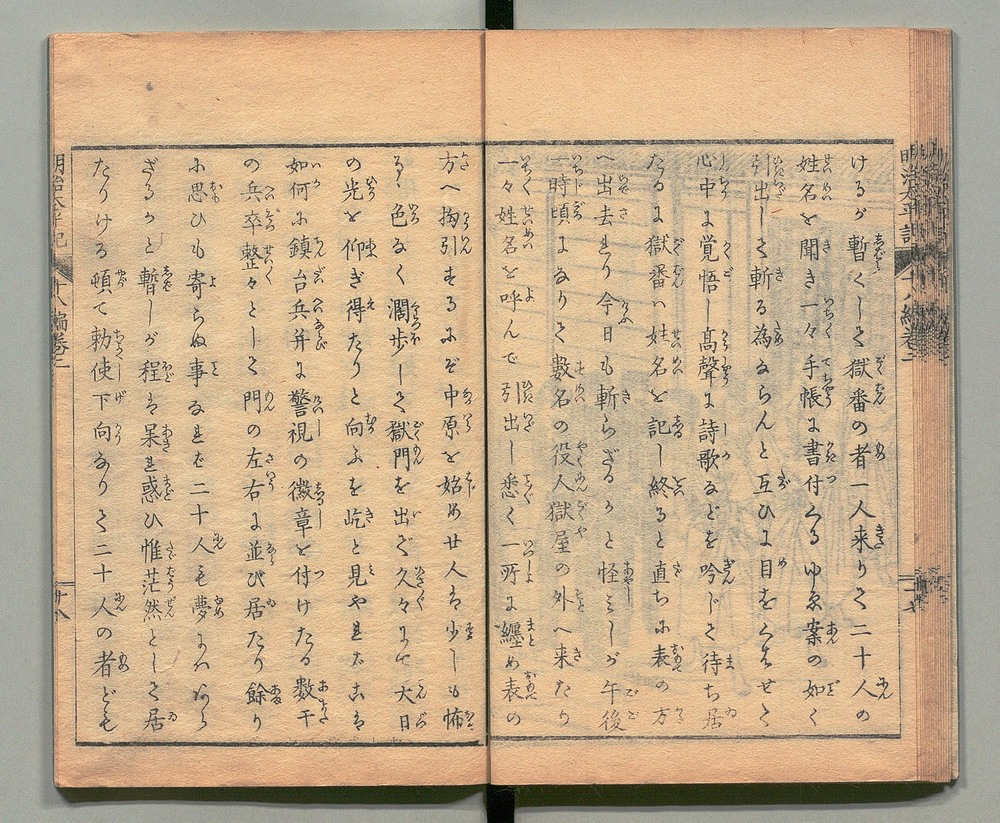 明治太平記 十八編巻二
けるが暫くして獄番の者一人来りて二十人の
姓名を聞き一々手帳に書付くるゆゑ案の如く
引出して斬る為ならんと互ひに目をくはせて
心中に覚悟し高聲に詩歌などを吟じて待ち居
たるに獄番ハ姓名を記し終ると直ちに表の方
へ出去れり今日も斬らざるかと怪みしが午後
一時頃になりて数名の役人獄屋の外へ来たり
一々姓名を呼んで引出し悉く一所に纏め表の
方へ拘引するにぞ中原を始め廿人は少しも怖
るゝ色なく濶歩して獄門を出で久々にて大日
の光を仰ぎ得たりと向ふを屹と見やれば こは
如何に鎮台兵并に警視の徽章を付けたる数千
の兵卒整々として門の左右に並び居たり餘り
に思ひも寄らぬ事なれば二十人も夢にハあら
ざるかと暫しが程は呆れ惑ひ惟茫然として居
たりける頓て勅使下向ありて二十人の者ども
明治太平記 十八編巻二 十八